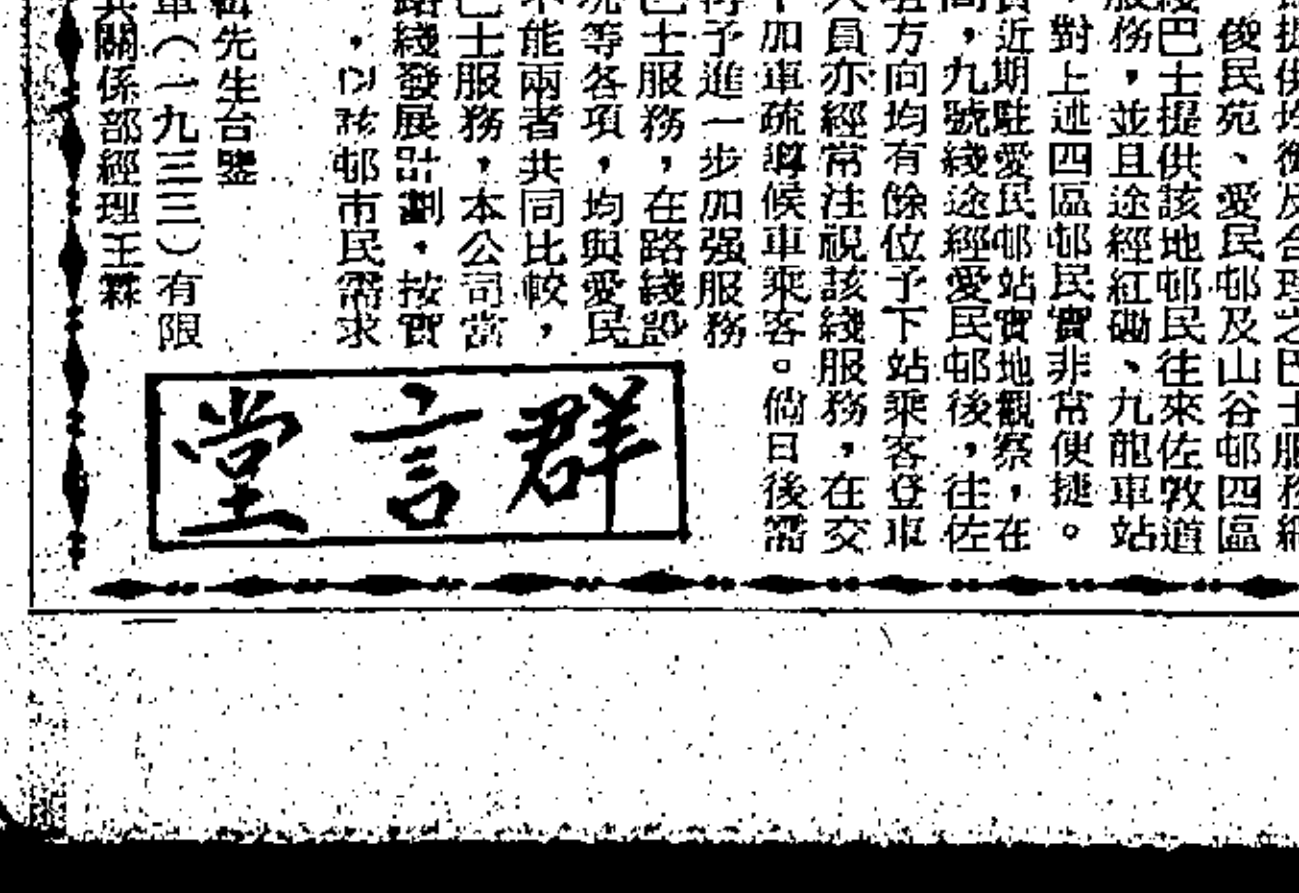 提供均衡及合理之巴士服務
俊民苑、愛民邨及山谷邨四區
綫巴士提供該地邨民往來佐敦道
服務，並且途經紅磡、九龍車站
，對上述四區邨民實非常便捷。
實近期駐愛民邨站實地觀察，在
間，九號綫途經愛民邨後，往佐
方向均有餘位予下站乘客登車
人員亦經常注視該綫服務，在交
加車疏導候車乘客。倘日後需
得予進一步加强服務
巴士服務，在路綫設
況等各項，均與愛民
不能兩者共同比較，
巴士服務，本公司當
路綫發展計劃，按實
，以該邨市民需求
輯先生台鑒
車（一九三三）有限
共關係部經理王霖
群言堂